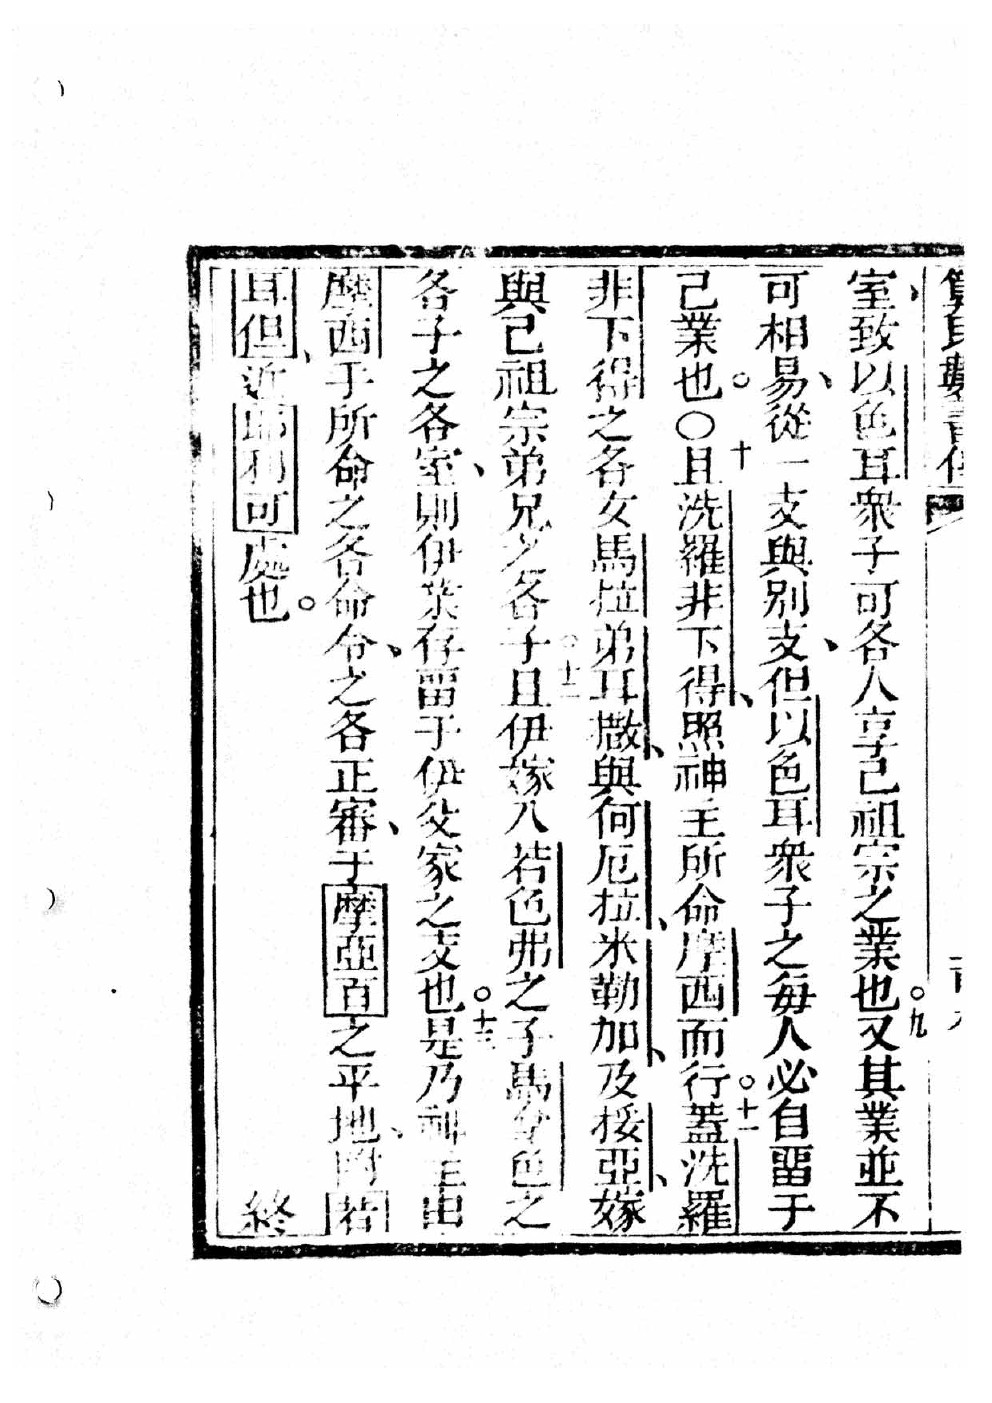 室致以色耳衆子可各人享己祖宗之業也。九又其業並不
可相易、從一支與別支、但以色耳衆子之每人必自留于
己業也。○十且洗羅非下得、照神主所命摩西而行。十一蓋洗羅
非下得之各女馬拉弟耳撒、與何厄拉、米勒加、及挼亞、嫁
與己祖宗弟兄之各子。十二且伊嫁入若色弗之子馬拿色之
各子之各室、則伊業存留于伊父家之支也。十三是乃神主由
摩西于所命之各命令、之各正審、于摩亞百之平地、附若
耳但、近耶利可處也。
終